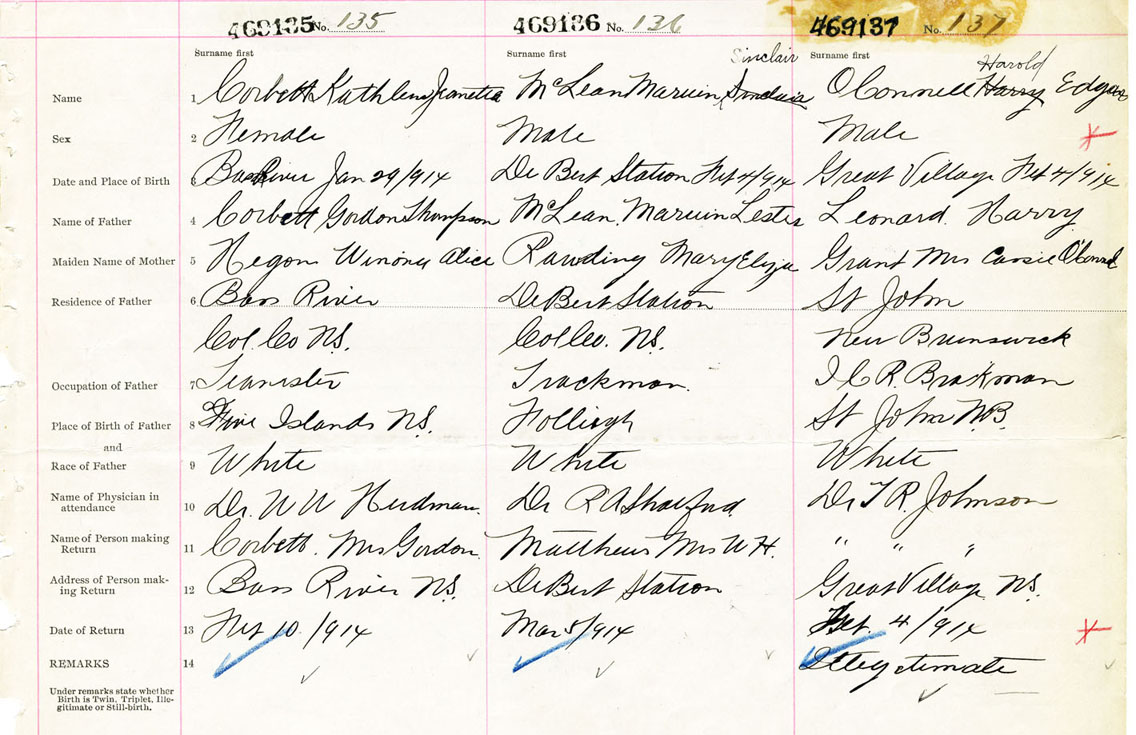 469135 No. 135 469136 No. 136 469137 No. 137
Surname first Surname first Sinclair Surname first Harold
Name 1 Corbett Kathleen Jeanetta McLean Marvin Sinclair OConnell Harry Edgar
Sex 2 Female Male Male
Date and Place of Birth 3 Bass River Jan 29/914 De Bert Station Feb 4/914 Great Village Feb 4/914
Name of Father 4 Corbett Gordon Thompson McLean. Marvin Lester Leonard. Harry
Maiden Name of Mother 5 Winona Alice Rawding Mary Eliza Grant Mrs Cassie O'Connel
Residence of Father 6 Bass River DeBert Station St John
Col. Co N.S. Col Co. N.S. New Brunswick
Occupation of Father 7 Trackman. I.C.R. Brakman
Place of Birth of Father 8 Five Islands N.S. St John N.B.
and
Race of Father 9 White White White
Name of Physician in
attendance 10 Dr. W W Dr R A Dr T R. Johnson
Name of Person making
Return 11 Corbett. Mrs Gordon. Matthews Mrs W H. " " "
Address of Person mak-
ing Return 12 Bass River N.S. DeBert Station Great Village N.S.
Date of Return 13 Feb 10/914 Mar 5/914 Feb. 4/914
REMARKS 14 Illegetimate
Under remarks state whether
Birth is Twin, Triplet, Ille-
gitimate or Still-birth.